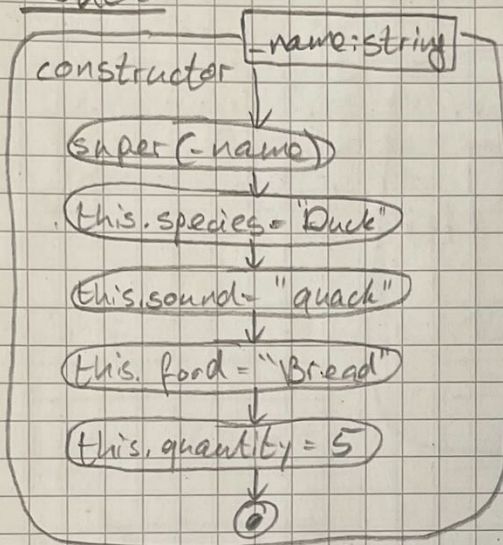 _name: string
constructor
super(_name)
this.species = "Duck"
this.sound = "quack"
this.food = "Bread"
this.quantity = 5